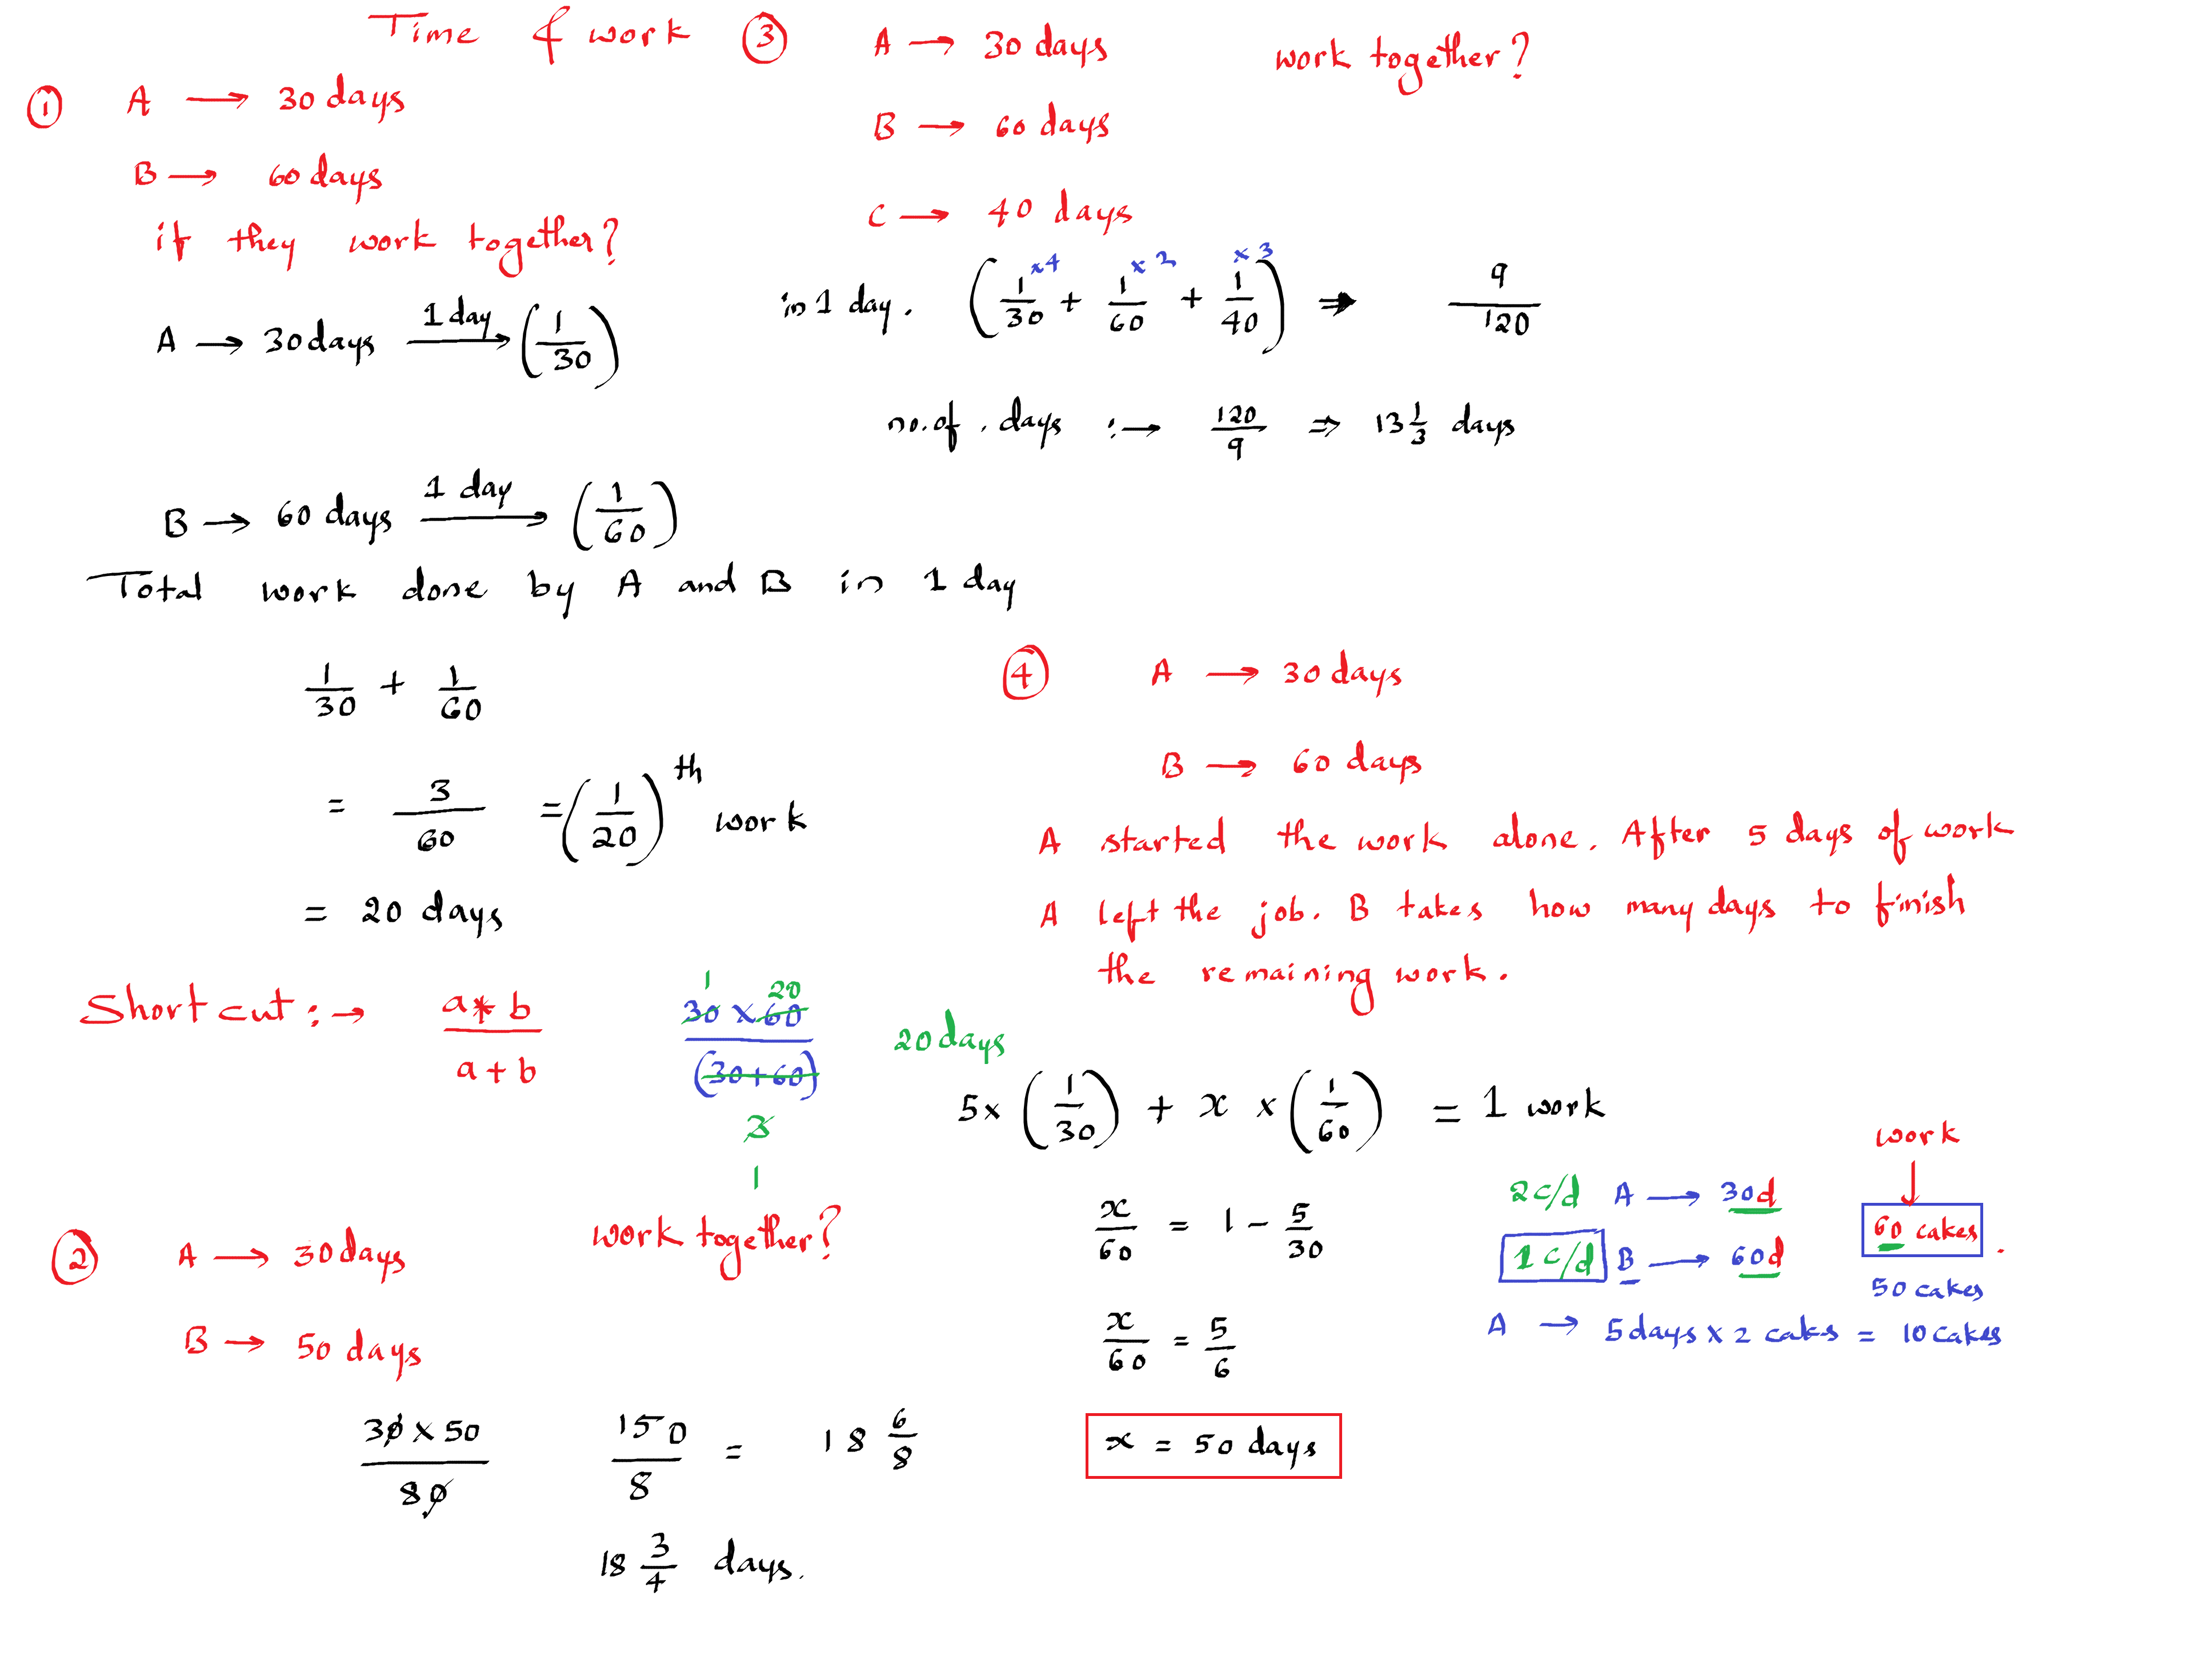 Time & work
① A → 30 days
B → 60 days
if they work together?
A → 30 days 1 day → (1/30)
B → 60 days 1 day → (1/60)
Total work done by A and B in 1 day
1/30 + 1/60
= 3/60 = (1/20)th work
= 20 days
Short cut :→ a * b / a + b
30 x 60 / (30+60) 20 days
1 20
3
1
② A → 30 days work together?
B → 50 days
30 x 50 / 80 150/8 = 18 6/8
18 3/4 days.
③ A → 30 days work together?
B → 60 days
C → 40 days
x4 x2 x3
in 1 day. (1/30 + 1/60 + 1/40) ⇒ 9/120
no. of . days :→ 120/9 ⇒ 13 1/3 days
④ A → 30 days
B → 60 days
A started the work alone. After 5 days of work
A left the job. B takes how many days to finish
the remaining work.
5x (1/30) + x x (1/60) = 1 work
x/60 = 1 - 5/30
x/60 = 5/6
x = 50 days
work
↓
2c/d A → 30d 60 cakes .
1 c/d B → 60d
50 cakes
A → 5 days x 2 cakes = 10 cakes